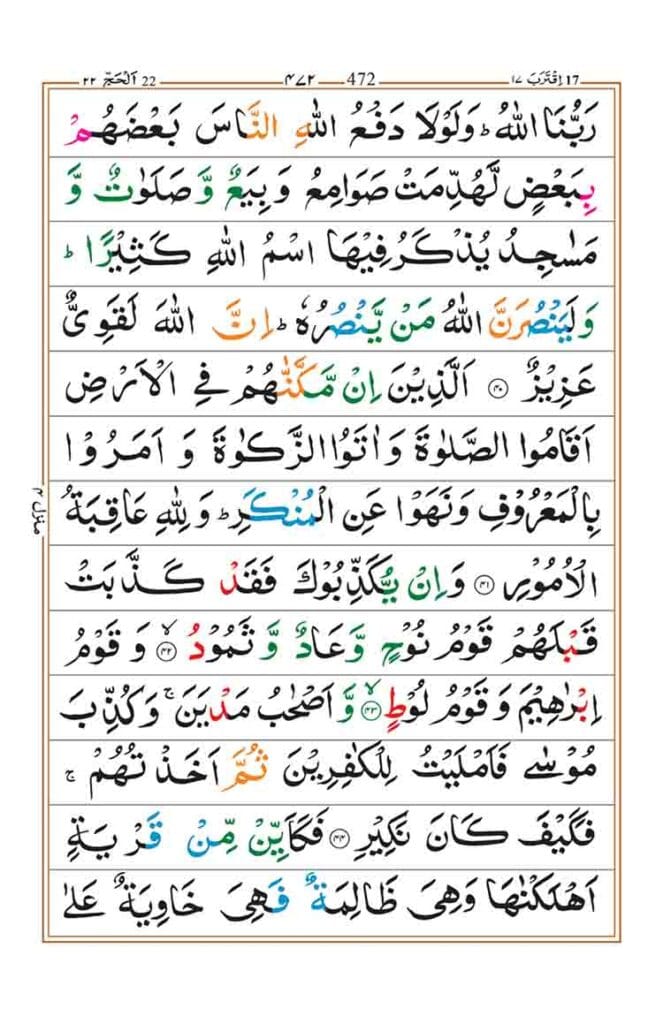 اِقْتَرَبَ ١٧ 17 472 ٤٧٢ 22 اَلْحَجّ ٢٢
رَبُّنَا اللّٰهُ ؕ وَلَوْلَا دَفْعُ اللّٰهِ النَّاسَ بَعْضَهُمْ
بِبَعْضٍ لَّهُدِّمَتْ صَوَامِعُ وَبِيَعٌ وَّصَلَوٰتٌ وَّ
مَسٰجِدُ يُذْكَرُ فِيْهَا اسْمُ اللّٰهِ كَثِيْرًا ؕ
وَلَيَنْصُرَنَّ اللّٰهُ مَنْ يَّنْصُرُهٗ ؕ اِنَّ اللّٰهَ لَقَوِىٌّ
عَزِيْزٌ ﴿٤٠﴾ اَلَّذِيْنَ اِنْ مَّكَّنّٰهُمْ فِى الْاَرْضِ
اَقَامُوا الصَّلٰوةَ وَاٰتَوُا الزَّكٰوةَ وَ اَمَرُوْا
بِالْمَعْرُوْفِ وَنَهَوْا عَنِ الْمُنْكَرِ ؕ وَلِلّٰهِ عَاقِبَةُ
الْاُمُوْرِ ﴿٤١﴾ وَاِنْ يُّكَذِّبُوْكَ فَقَدْ كَذَّبَتْ
قَبْلَهُمْ قَوْمُ نُوْحٍ وَّعَادٌ وَّ ثَمُوْدُ ﴿٤٢﴾ۙ وَ قَوْمُ
اِبْرٰهِيْمَ وَقَوْمُ لُوْطٍ ﴿٤٣﴾ۙ وَّ اَصْحٰبُ مَدْيَنَ ۚ وَكُذِّبَ
مُوْسٰى فَاَمْلَيْتُ لِلْكٰفِرِيْنَ ثُمَّ اَخَذْتُهُمْ ۚ
فَكَيْفَ كَانَ نَكِيْرِ ﴿٤٤﴾ فَكَاَيِّنْ مِّنْ قَرْيَةٍ
اَهْلَكْنٰهَا وَهِىَ ظَالِمَةٌ فَهِىَ خَاوِيَةٌ عَلٰى
منزل ٤